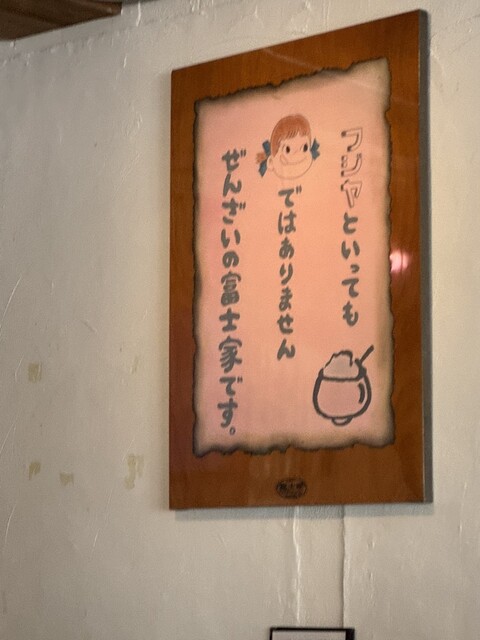 フジヤといっても
ではありません
ぜんざいの富士家です。